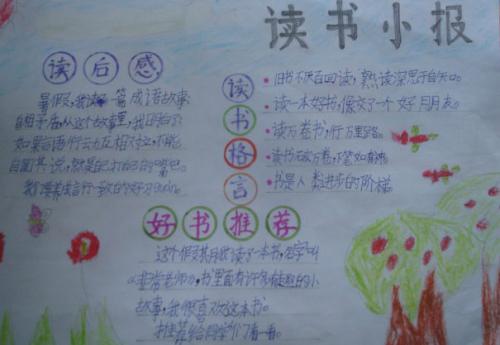 读书小报
读后感
暑假,我读了一篇成语故事
自相矛盾,从这个故事里,我明白了
如果言语行动互相对立,不能
自圆其说,就是自打自己的嘴巴。
我要养成言行一致的好习惯。
读书格言
旧书不厌百回读,熟读深思子自知。
读一本好书,像交了一个好朋友。
读万卷书,行万里路。
读书破万卷,下笔如有神。
书是人类进步的阶梯。
好书推荐
这个假期我读了一本书,名字叫
《非常老师》,书里面有许多有趣的小
故事,我很喜欢这本书。
推荐给同学们看一看。